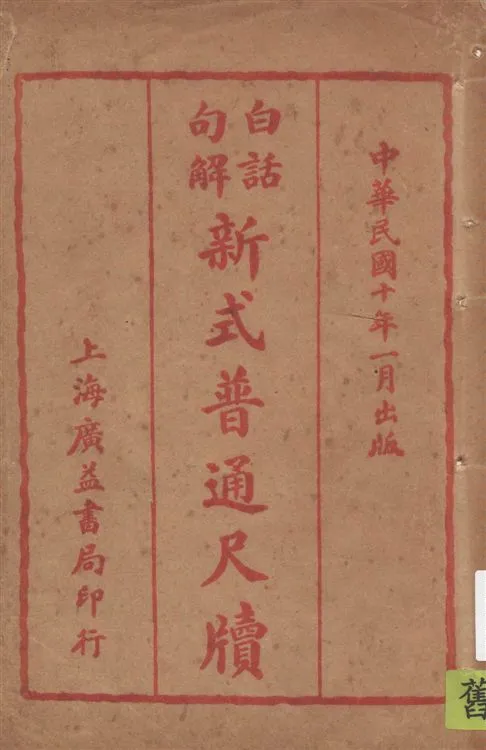 中華民國十年一月出版
白話
句解
新式普通尺牘
上海廣益書局印行
舊